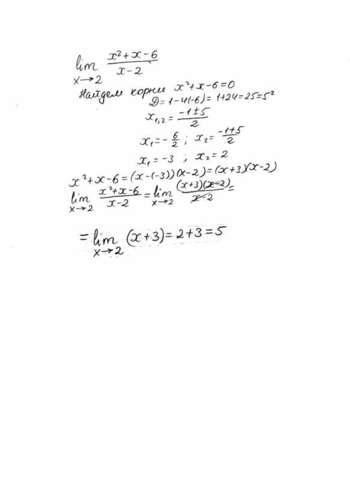 lim x→2 (x²+x-6)/(x-2)
Найдем корни x²+x-6=0
D=1-4(-6)=1+24=25=5²
x₁,₂=(-1±5)/2
x₁=-6/2 ; x₂=(-1+5)/2
x₁=-3 ; x₂=2
x²+x-6=(x-(-3))(x-2)=(x+3)(x-2)
lim x→2 (x²+x-6)/(x-2)=lim x→2 (x+3)(x-2)/(x-2)=
=lim x→2 (x+3)=2+3=5